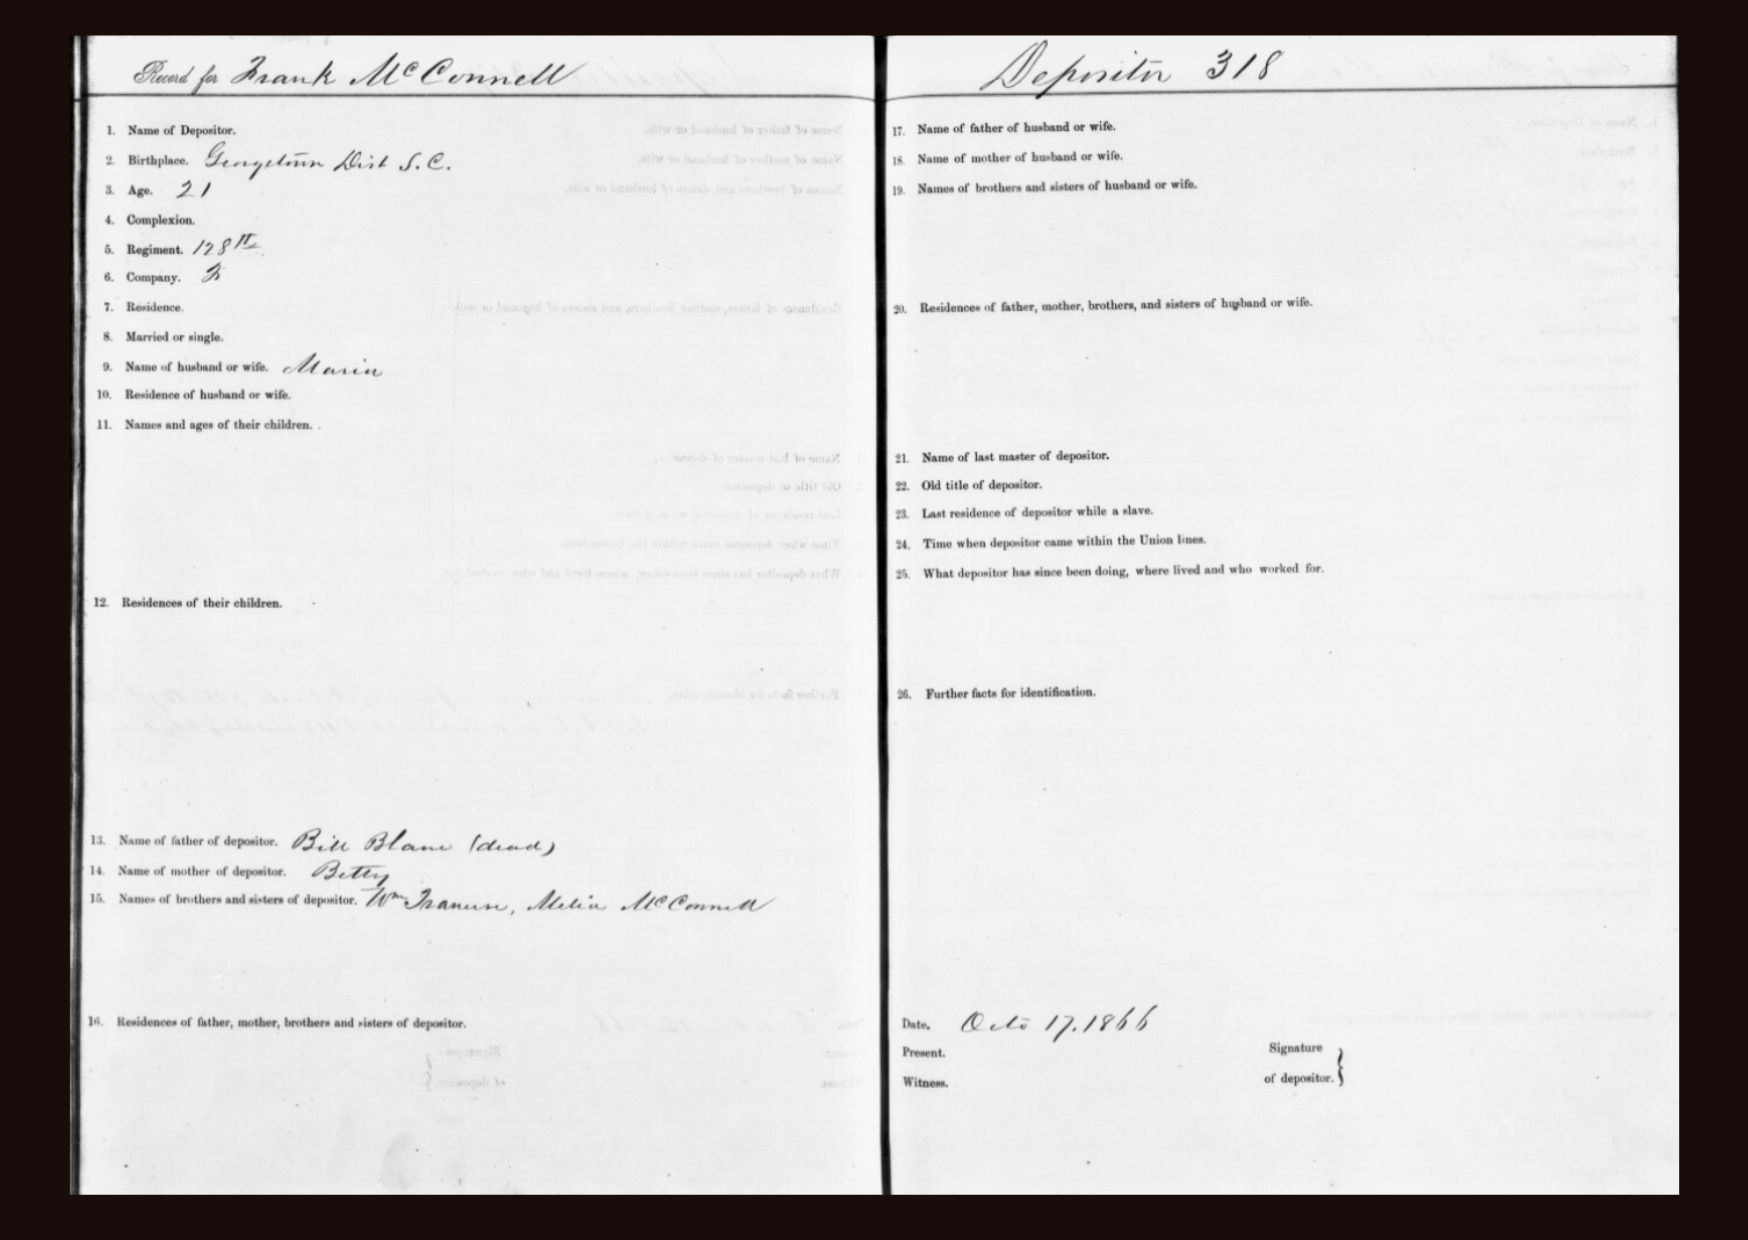 Record for Frank McConnell
1. Name of Depositor.
2. Birthplace. Georgetown Dist S.C.
3. Age. 21
4. Complexion.
5. Regiment. 128th
6. Company.
7. Residence.
8. Married or single.
9. Name of husband or wife.
10. Residence of husband or wife.
11. Names and ages of their children.
12. Residences of their children.
13. Name of father of depositor. Bill (dead)
14. Name of mother of depositor. Betty
15. Names of brothers and sisters of depositor. Wm McConnell
16. Residences of father, mother, brothers and sisters of depositor.
Depositor 318
17. Name of father of husband or wife.
18. Name of mother of husband or wife.
19. Names of brothers and sisters of husband or wife.
20. Residences of father, mother, brothers, and sisters of husband or wife.
21. Name of last master of depositor.
22. Old title of depositor.
23. Last residence of depositor while a slave.
24. Time when depositor came within the Union lines.
25. What depositor has since been doing, where lived and who worked for.
26. Further facts for identification.
Date. Octo 17, 1866
Present.
Witness.
Signature
of depositor. }